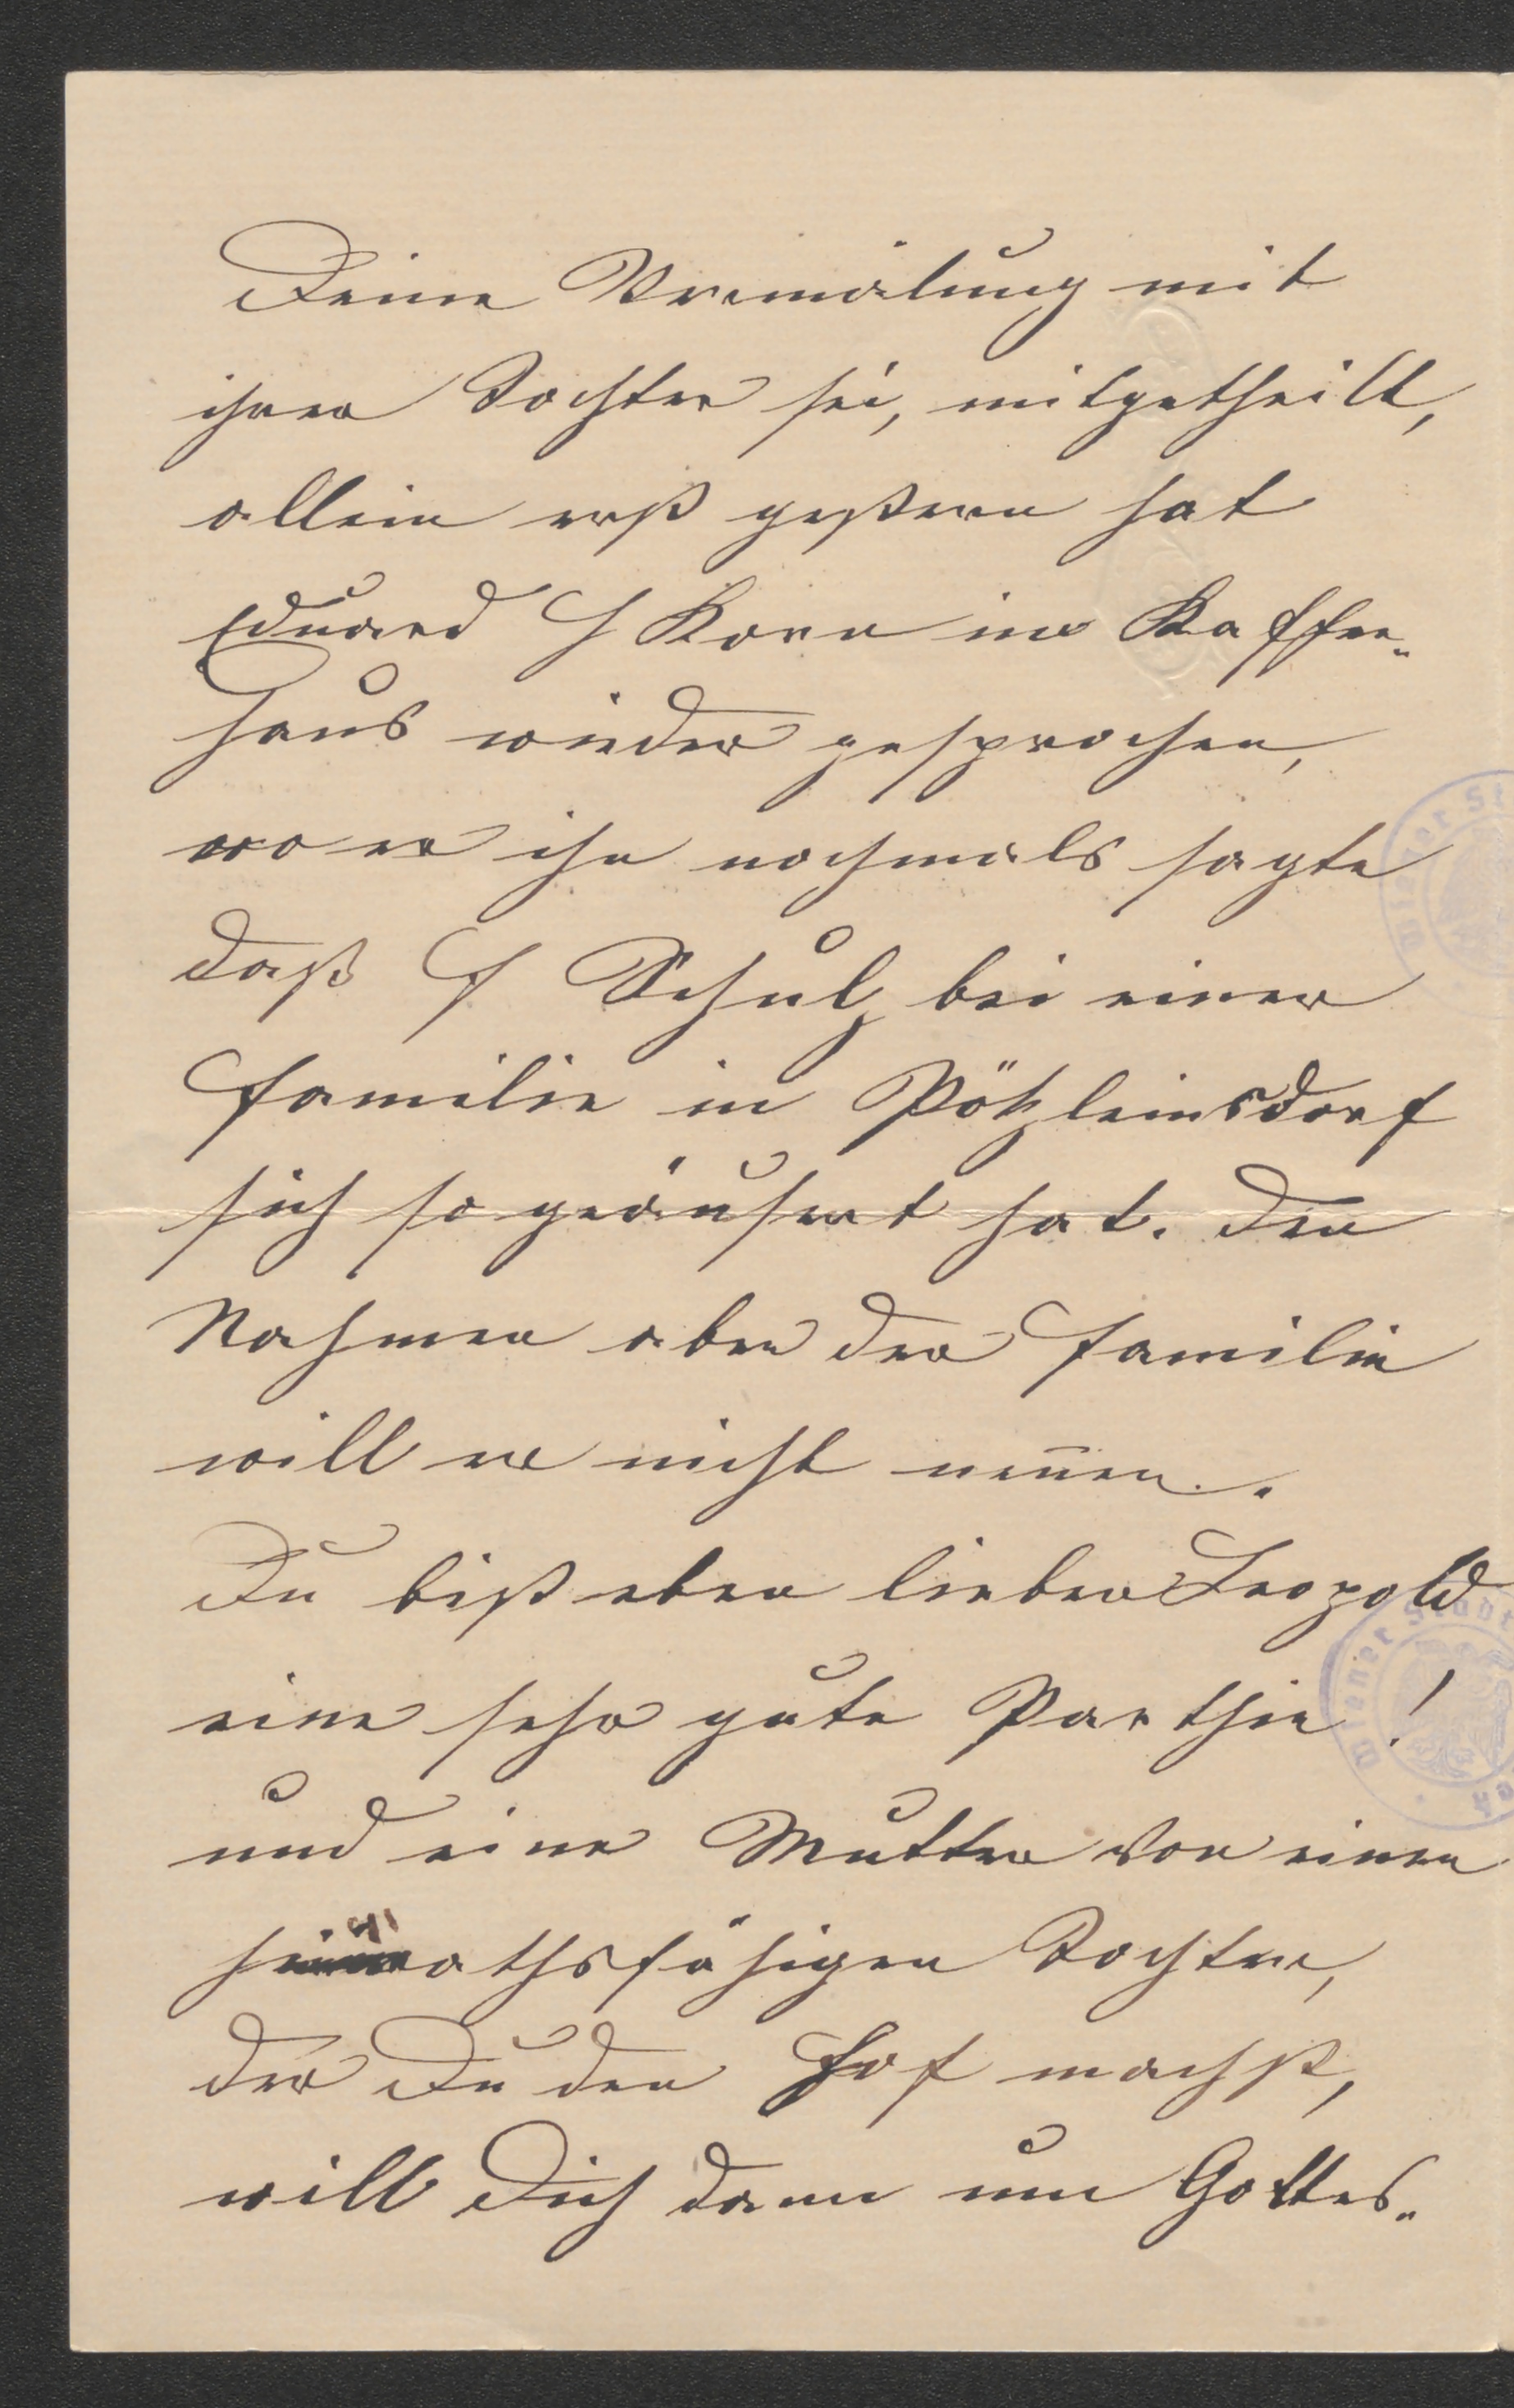 Deine Vermälung mit
ihrer Tochter sei, mitgetheilt,
allein erst gestern hat
Eduard H Korn im Kaffee„
haus wieder gesprochen,
wo er ihn nochmals sagte
daß H Schulz bei einer
Familie in Pötzleinsdorf
sich so geäusert hat. Den
Nahmen aber der Familie
will er nicht nen̄en.
Du bist eben lieber Leopold
eine sehr gute Parthie!
und eine Mutter von einer
heirathsfähigen Tochter,
der Du den Hof machst,
will Dich dann um Gottes„
Wiener Stadt